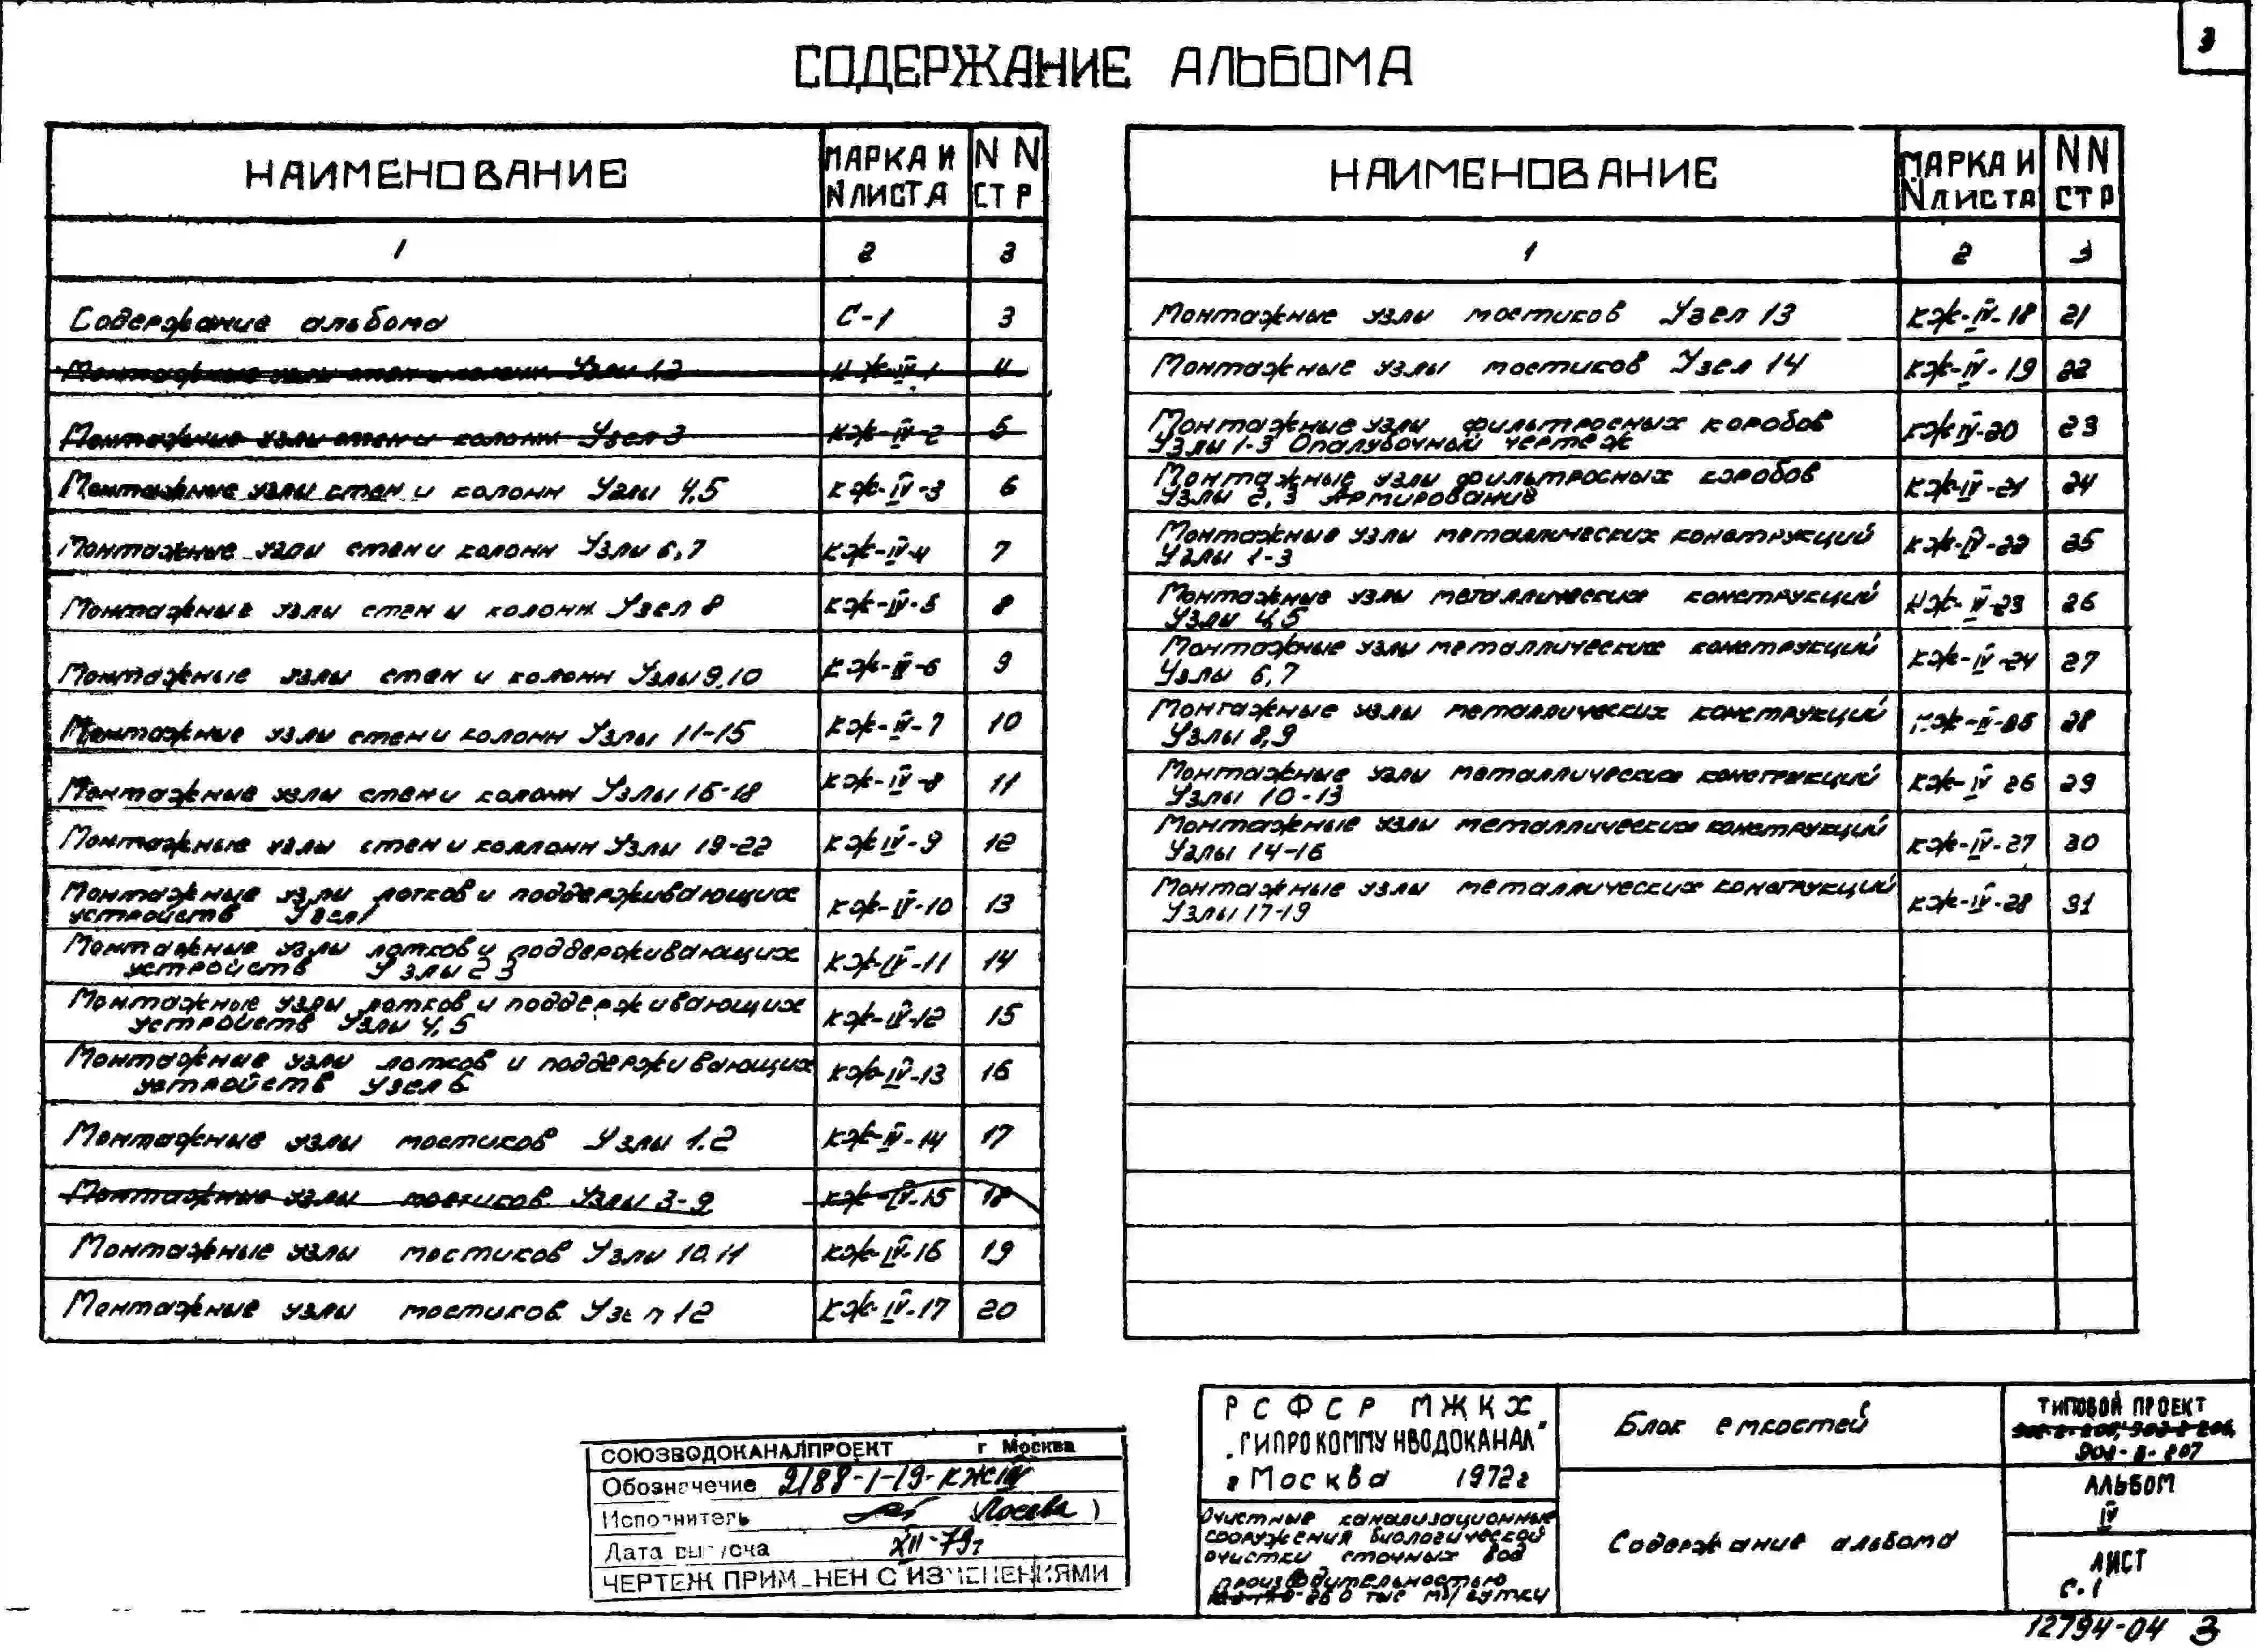 3
СОДЕРЖАНИЕ АЛЬБОМА
НАИМЕНОВАНИЕ МАРКА И N ЛИСТА N N СТР
1 2 3
Содержание альбома С-1 3
Монтажные узлы стен и колонн Узлы 1,2 КЖ-IV-1 4
Монтажние узлы стен и колонн Узел 3 КЖ-IV-2 5
Монтажные узлы стен и колонн Узлы 4,5 КЖ-IV-3 6
Монтажные узлы стен и колонн Узлы 6,7 КЖ-IV-4 7
Монтажные узлы стен и колонн Узел 8 КЖ-IV-5 8
Монтажные узлы стен и колонн Узлы 9,10 КЖ-IV-6 9
Монтажные узлы стен и колонн Узлы 11-15 КЖ-IV-7 10
Монтажные узлы стен и колонн Узлы 16-18 КЖ-IV-8 11
Монтажные узлы стен и коллонн Узлы 19-22 КЖ IV-9 12
Монтажные узлы лотков и поддерживающих
устройств Узел 1 КЖ-IV-10 13
Монтажные узлы лотков и поддерживающих
устройств Узлы 2 3 КЖ-IV-11 14
Монтажные узлы лотков и поддерживающих
устройств Узлы 4,5 КЖ-IV-12 15
Монтажные узлы лотков и поддерживающих
устройств Узел 6 КЖ-IV-13 16
Монтажные узлы мостиков Узлы 1.2 КЖ-IV-14 17
Монтажные узлы мостиков Узлы 3-9 КЖ-IV-15 18
Монтажные узлы мостиков Узлы 10.11 КЖ-IV-16 19
Монтажные узлы мостиков Узел 12 КЖ-IV-17 20
НАИМЕНОВАНИЕ МАРКА И N ЛИСТА N N СТР
1 2 3
Монтажные узлы мостиков Узел 13 КЖ-IV-18 21
Монтажные узлы мостиков Узел 14 КЖ-IV-19 22
Монтажные узлы фильтросных коробов
Узлы 1-3 Опалубочный чертеж КЖ IV-20 23
Монтажные узлы фильтросных коробов
Узлы 2,3 Армирование КЖ-IV-21 24
Монтажные узлы металлических конструкций
Узлы 1-3 КЖ-IV-22 25
Монтажные узлы металлических конструкций
Узлы 4,5 КЖ-IV-23 26
Монтажные узлы металлических конструкций
Узлы 6,7 КЖ-IV-24 27
Монтажные узлы металлических конструкций
Узлы 8,9 КЖ-IV-25 28
Монтажные узлы металлических конструкций
Узлы 10-13 КЖ-IV 26 29
Монтажные узлы металлических конструкций
Узлы 14-16 КЖ-IV-27 30
Монтажные узлы металлических конструкций
Узлы 17-19 КЖ-IV-28 31
СОЮЗВОДОКАНАЛПРОЕКТ г Москва
Обозначение 2188-1-19-КЖIV
Исполнитель Лосева )
Дата выпуска XII-79г
ЧЕРТЕЖ ПРИМЕНЕН С ИЗМЕНЕНИЯМИ
РСФСР МЖКХ
„ГИПРОКОММУНВОДОКАНАЛ"
г Москва 1972г
Очистные канализационные
сооружения биологической
очистки сточных вод
производительностью
280 тыс м³/сутки
Блок емкостей
Содержание альбома
ТИПОВОЙ ПРОЕКТ
902-2-207
АЛЬБОМ
IV
ЛИСТ
С-1
12794-04 3